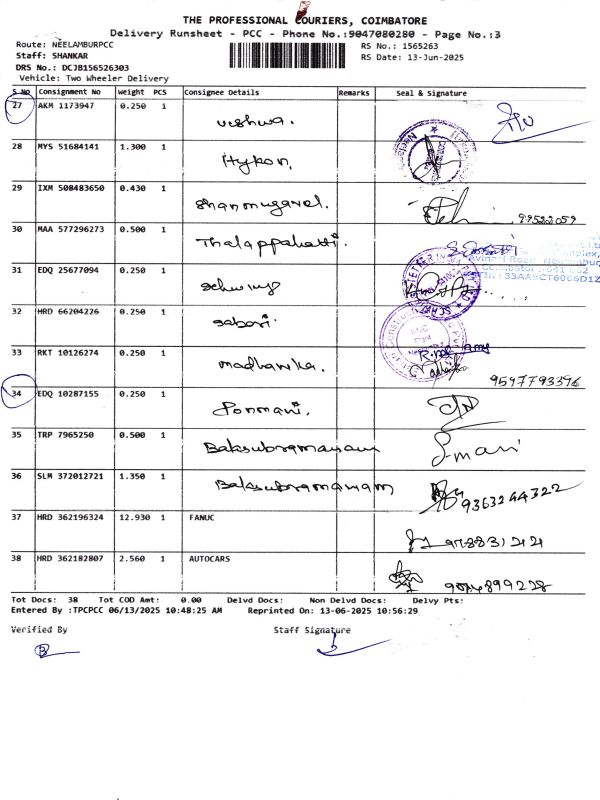 THE PROFESSIONAL COURIERS, COIMBATORE
Delivery Runsheet - PCC - Phone No.:9047080280 - Page No.:3
Route: NEELAMBURPCC
RS No.: 1565263
Staff: SHANKAR
RS Date: 13-Jun-2025
DRS No.: DCJB156526303
Vehicle: Two Wheeler Delivery
S No Consignment No Weight PCS Consignee Details Remarks Seal & Signature
27 AKM 1173947 0.250 1 veshwa.
28 MYS 51684141 1.300 1 Hykon,
29 IXM 508483650 0.430 1 Shanmugavel.
30 MAA 577296273 0.500 1 Thalappakatti.
31 EDQ 25677094 0.250 1 schwing
32 HRD 66204226 0.250 1 sabari.
33 RKT 10126274 0.250 1 madhanika. 9597793396
34 EDQ 10287155 0.250 1 Ponmani.
35 TRP 7965250 0.500 1 Balasubramaniam S-mani
36 SLM 372012721 1.350 1 Balasubramaniam 9363244322
37 HRD 362196324 12.930 1 FANUC
38 HRD 362182807 2.560 1 AUTOCARS
Tot Docs: 38 Tot COD Amt: 0.00 Delvd Docs: Non Delvd Docs: Delvy Pts:
Entered By :TPCPCC 06/13/2025 10:48:25 AM Reprinted On: 13-06-2025 10:56:29
Verified By Staff Signature